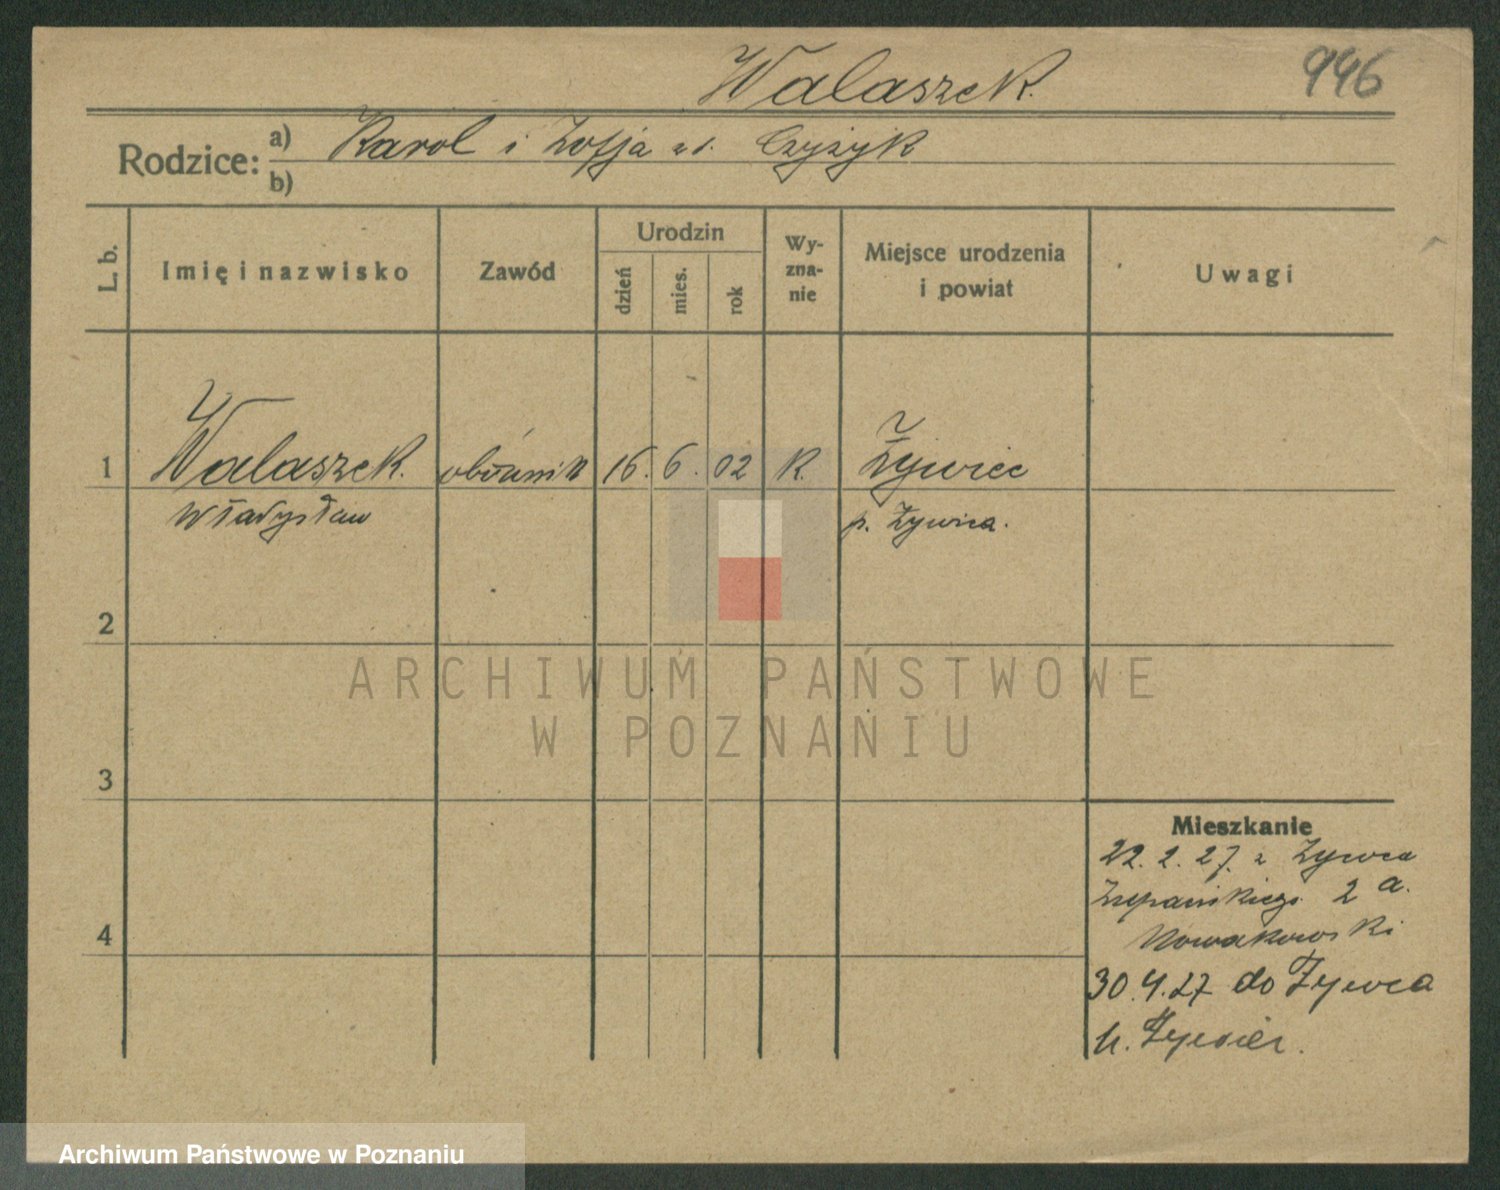 Walaszek
946
Rodzice: a) Karol i Zofja zd. Czyżyk
b)
L. b.
Imię i nazwisko
Zawód
Urodzin
dzień
mies.
rok
Wy-
zna-
nie
Miejsce urodzenia
i powiat
Uwagi
1 Walaszek 16. 6. 02 K. Żywiec
Władysław p. Żywiec.
2
3
4
Mieszkanie
22. 2. 27. z Żywca
2 a.
Nowakowski
30.4.27 do Żywca
ARCHIWUM PAŃSTWOWE
W POZNANIU
Archiwum Państwowe w Poznaniu